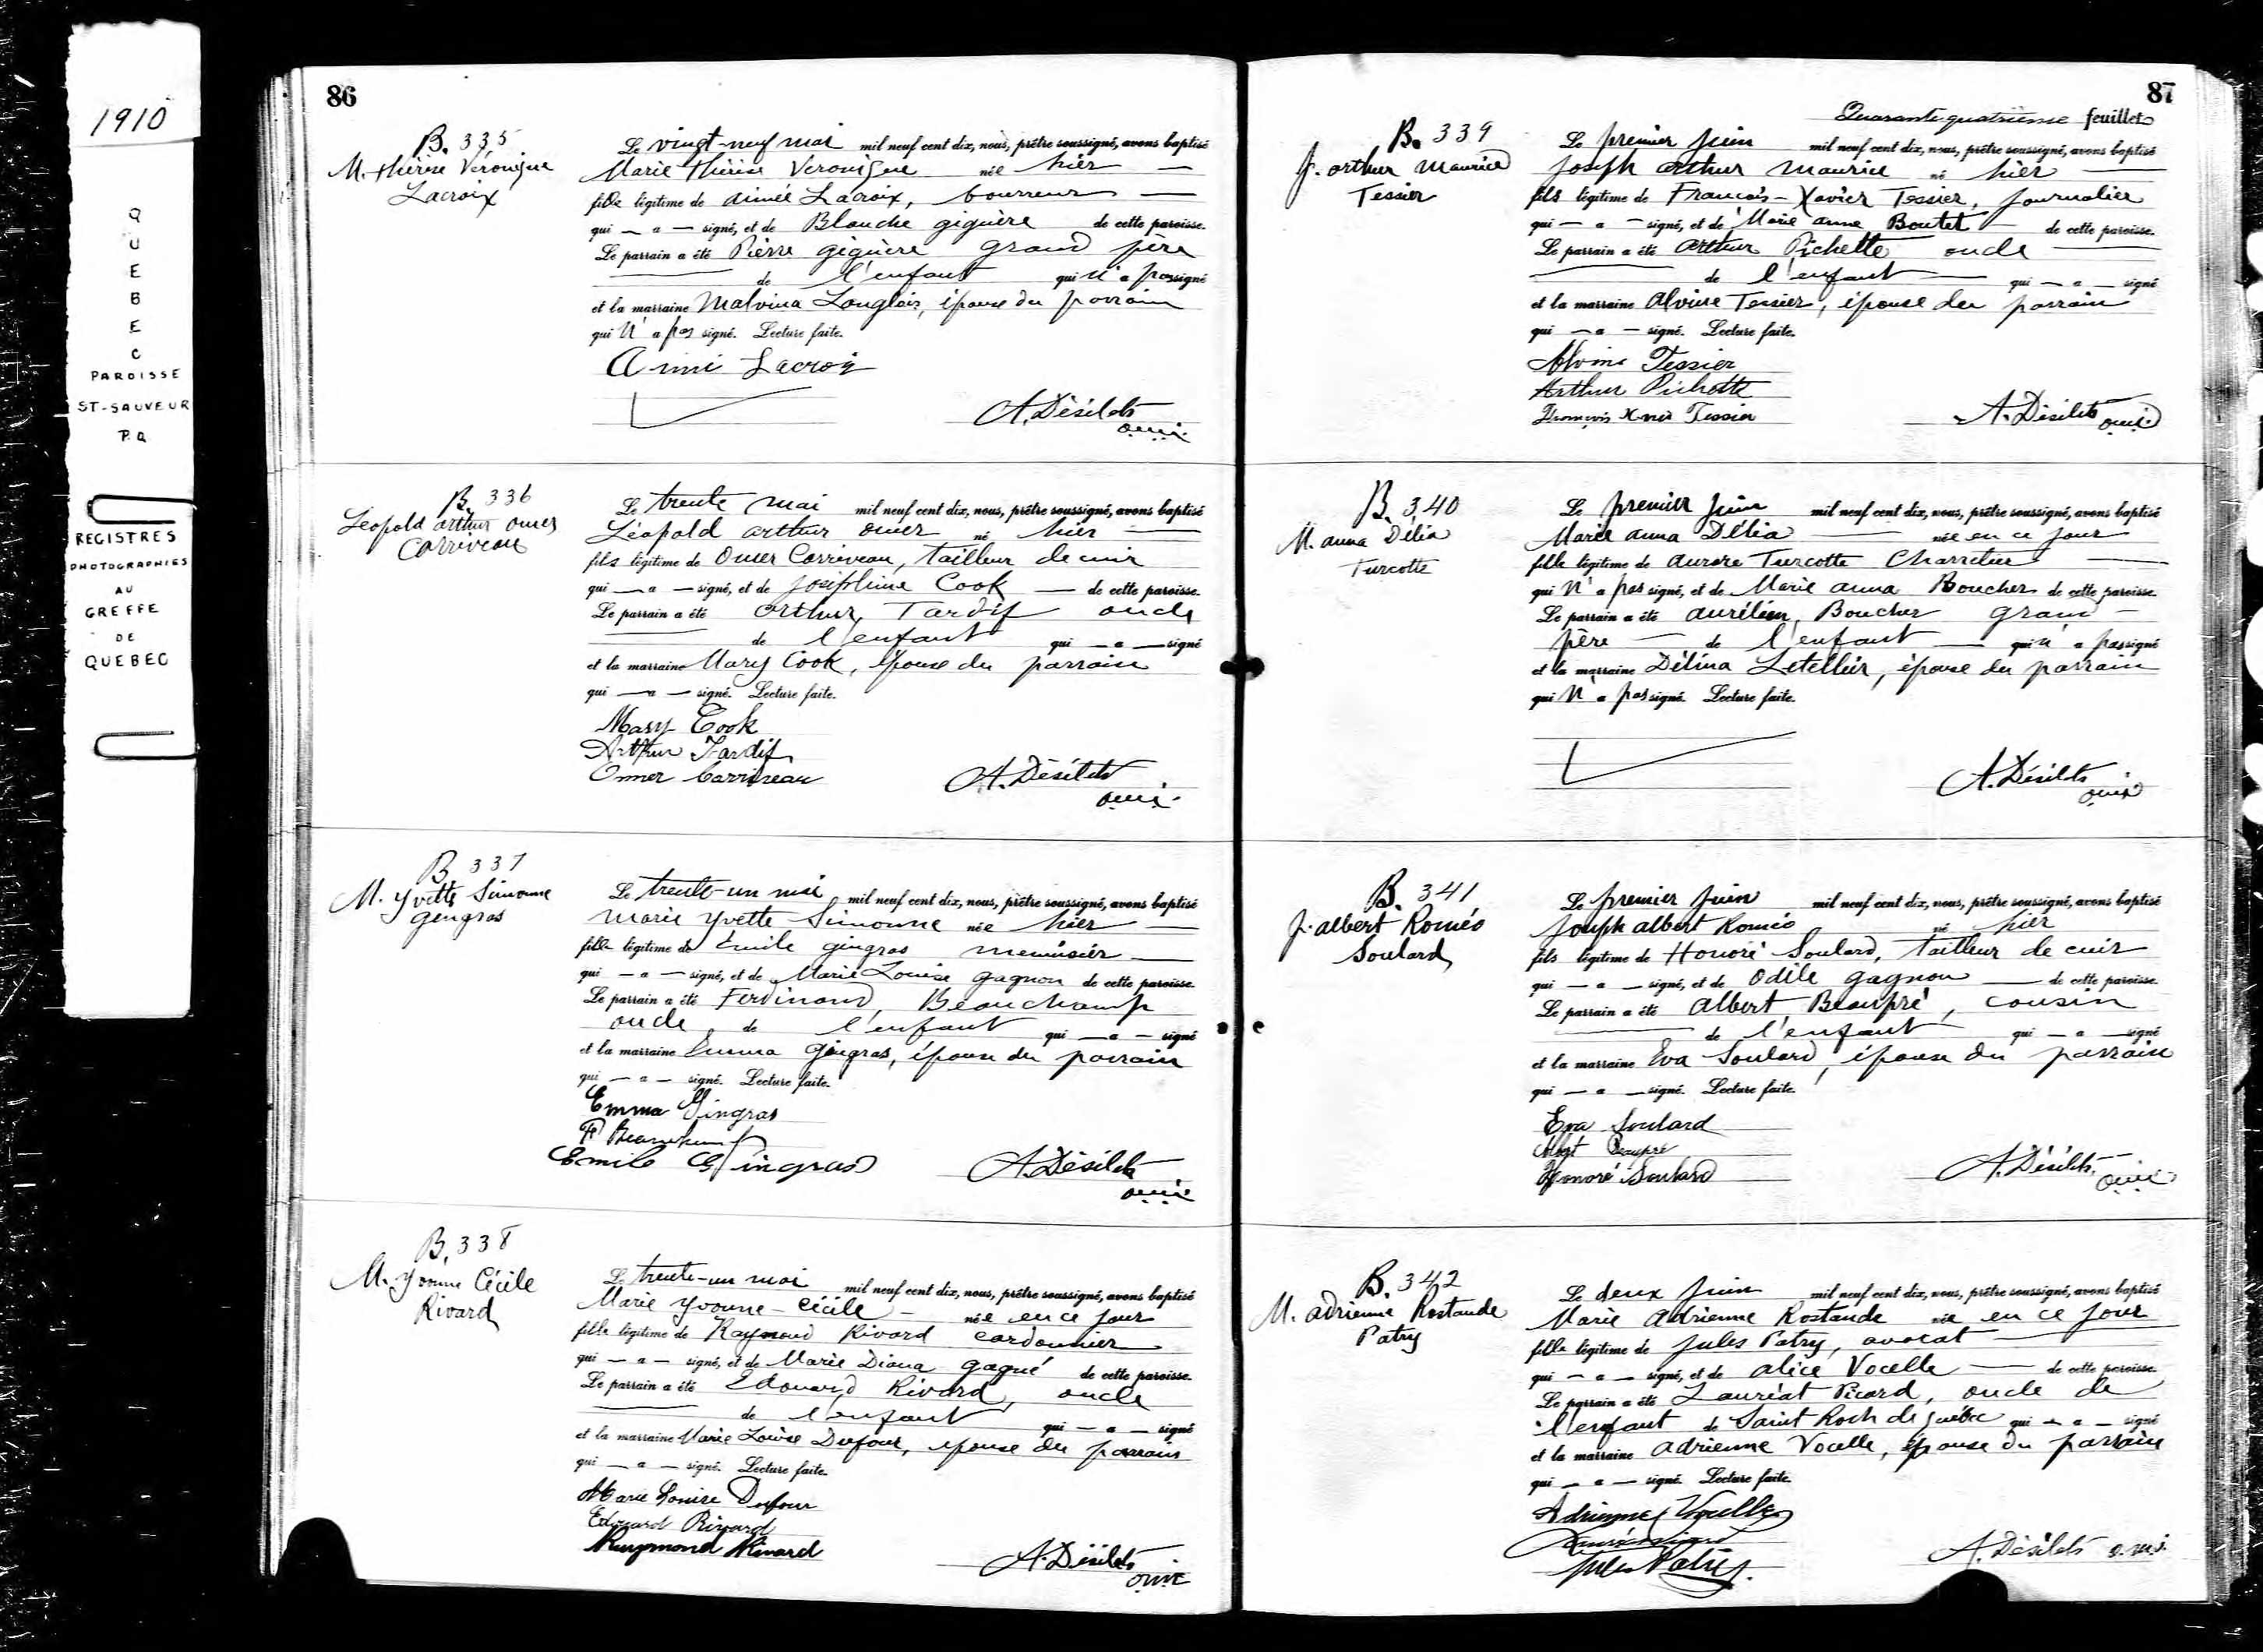 1910
QUEBEC
PAROISSE
ST-SAUVEUR
P.Q
REGISTRES
PHOTOGRAPHIES
AU
GREFFE
DE
QUEBEC
86
B. 335
M. Thérèse Véronique
Lacroix
Le vingt-neuf mai mil neuf cent dix, nous, prêtre soussigné, avons baptisé
Marie Thérèse Veronique née hier —
fille légitime de Aimée Lacroix, bourreur —
qui — a — signé, et de Blanche giguère de cette paroisse.
Le parrain a été Pierre giguère grand père
— de l'enfant qui n'a pas signé
et la marraine Malvina Langlois, épouse du parrain
qui n'a pas signé. Lecture faite.
Aimi Lacroix
A. Désilets
o.m.i.
B. 336
Léopold arthur omer
Corriveau
Le trente mai mil neuf cent dix, nous, prêtre soussigné, avons baptisé
Léopold arthur omer né hier —
fils légitime de Omer Corriveau, tailleur de cuir
qui — a — signé, et de Joséphine Cook — de cette paroisse.
Le parrain a été arthur Tardif oncle
— de l'enfant qui — a — signé
et la marraine Mary Cook, épouse du parrain
qui — a — signé. Lecture faite.
Mary Cook
Arthur Tardif
Omer Carriveau
A. Désilets
o.m.i.
B. 337
M. Yvette Simonne
gingras
Le trente-un mai mil neuf cent dix, nous, prêtre soussigné, avons baptisé
Marie Yvette Simonne née hier —
fille légitime de Émile gingras menuisier —
qui — a — signé, et de Marie Louise gagnon de cette paroisse.
Le parrain a été Ferdinand, Beauchamp
oncle de l'enfant qui — a — signé
et la marraine Emma gingras, épouse du parrain
qui — a — signé. Lecture faite.
Emma Gingras
F Beauchamp
Emile Gingras
A. Désilets
o.m.i.
B. 338
M. Yvonne Cécile
Rivard
Le trente-un mai mil neuf cent dix, nous, prêtre soussigné, avons baptisé
Marie Yvonne-Cécile — née en ce jour
fille légitime de Raymond Rivard cordonnier
qui — a — signé, et de Marie Diana gagné de cette paroisse.
Le parrain a été Edouard Rivard, oncle
— de l'enfant qui — a — signé
et la marraine Marie Louise Dufour, épouse du parrain
qui — a — signé. Lecture faite.
Marie Louise Dufour
Edouard Rivard
Raymond Rivard
A. Désilets
o.m.i.
87
Quarante-quatrième feuillet
B. 339
J. arthur Maurice
Tessier
Le premier juin mil neuf cent dix, nous, prêtre soussigné, avons baptisé
Joseph arthur Maurice né hier —
fils légitime de François-Xavier Tessier, journalier
qui — a — signé, et de Marie anne Boutet — de cette paroisse.
Le parrain a été arthur Pichette oncle —
— de l'enfant — qui — a — signé
et la marraine Alvine Tessier, épouse du parrain
qui — a — signé. Lecture faite.
Alvine Tessier
Arthur Pichette
François Xavier Tessier
A. Désilets
o.m.i.
B. 340
M. anna Délia
Turcotte
Le premier juin mil neuf cent dix, nous, prêtre soussigné, avons baptisé
Marie anna Délia — née en ce jour
fille légitime de aurore Turcotte Charretier —
qui n'a pas signé, et de Marie anna Boucher de cette paroisse.
Le parrain a été aurélien, Boucher grand-
père — de l'enfant — qui n'a pas signé
et la marraine Délina Letellier, épouse du parrain
qui n'a pas signé. Lecture faite.
A. Désilets
o.m.i.
B. 341
J. albert Roméo
Soulard
Le premier juin mil neuf cent dix, nous, prêtre soussigné, avons baptisé
Joseph albert Roméo né hier
fils légitime de Honoré Soulard, tailleur de cuir
qui — a — signé, et de Odile gagnon — de cette paroisse.
Le parrain a été Albert Beaupré, cousin
— de l'enfant qui — a — signé
et la marraine Eva Soulard, épouse du parrain
qui — a — signé. Lecture faite.
Eva Soulard
Albert Beaupré
Honoré Soulard
A. Désilets
o.m.i.
B. 342
M. adrienne Rostande
Patry
Le deux juin mil neuf cent dix, nous, prêtre soussigné, avons baptisé
Marie Adrienne Rostande née en ce jour
fille légitime de Jules Patry, avocat —
qui — a — signé, et de alice Vocelle — de cette paroisse.
Le parrain a été Lauréat Picard, oncle de
l'enfant de Saint Roch de Québec qui — a — signé
et la marraine adrienne Vocelle, épouse du parrain
qui — a — signé. Lecture faite.
Adrienne Vocelle
Jules Patry
A. Désilets o.m.i.